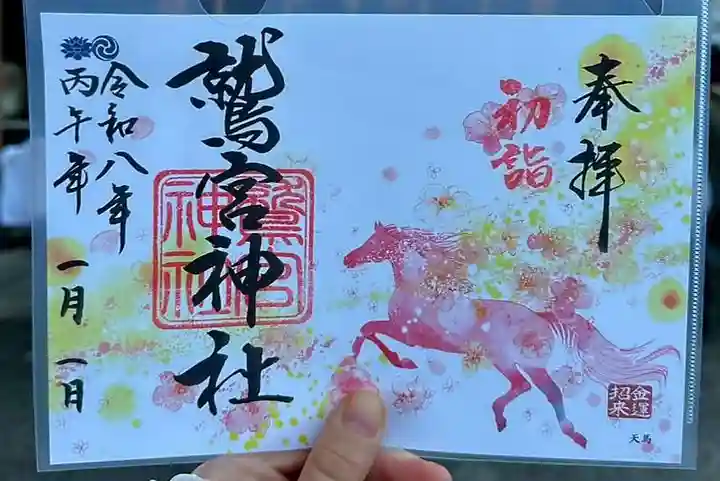 奉拝
初詣
鷲宮神社
鷲宮
神社
令和八年
丙午年
一月一日
金運
招来
天馬